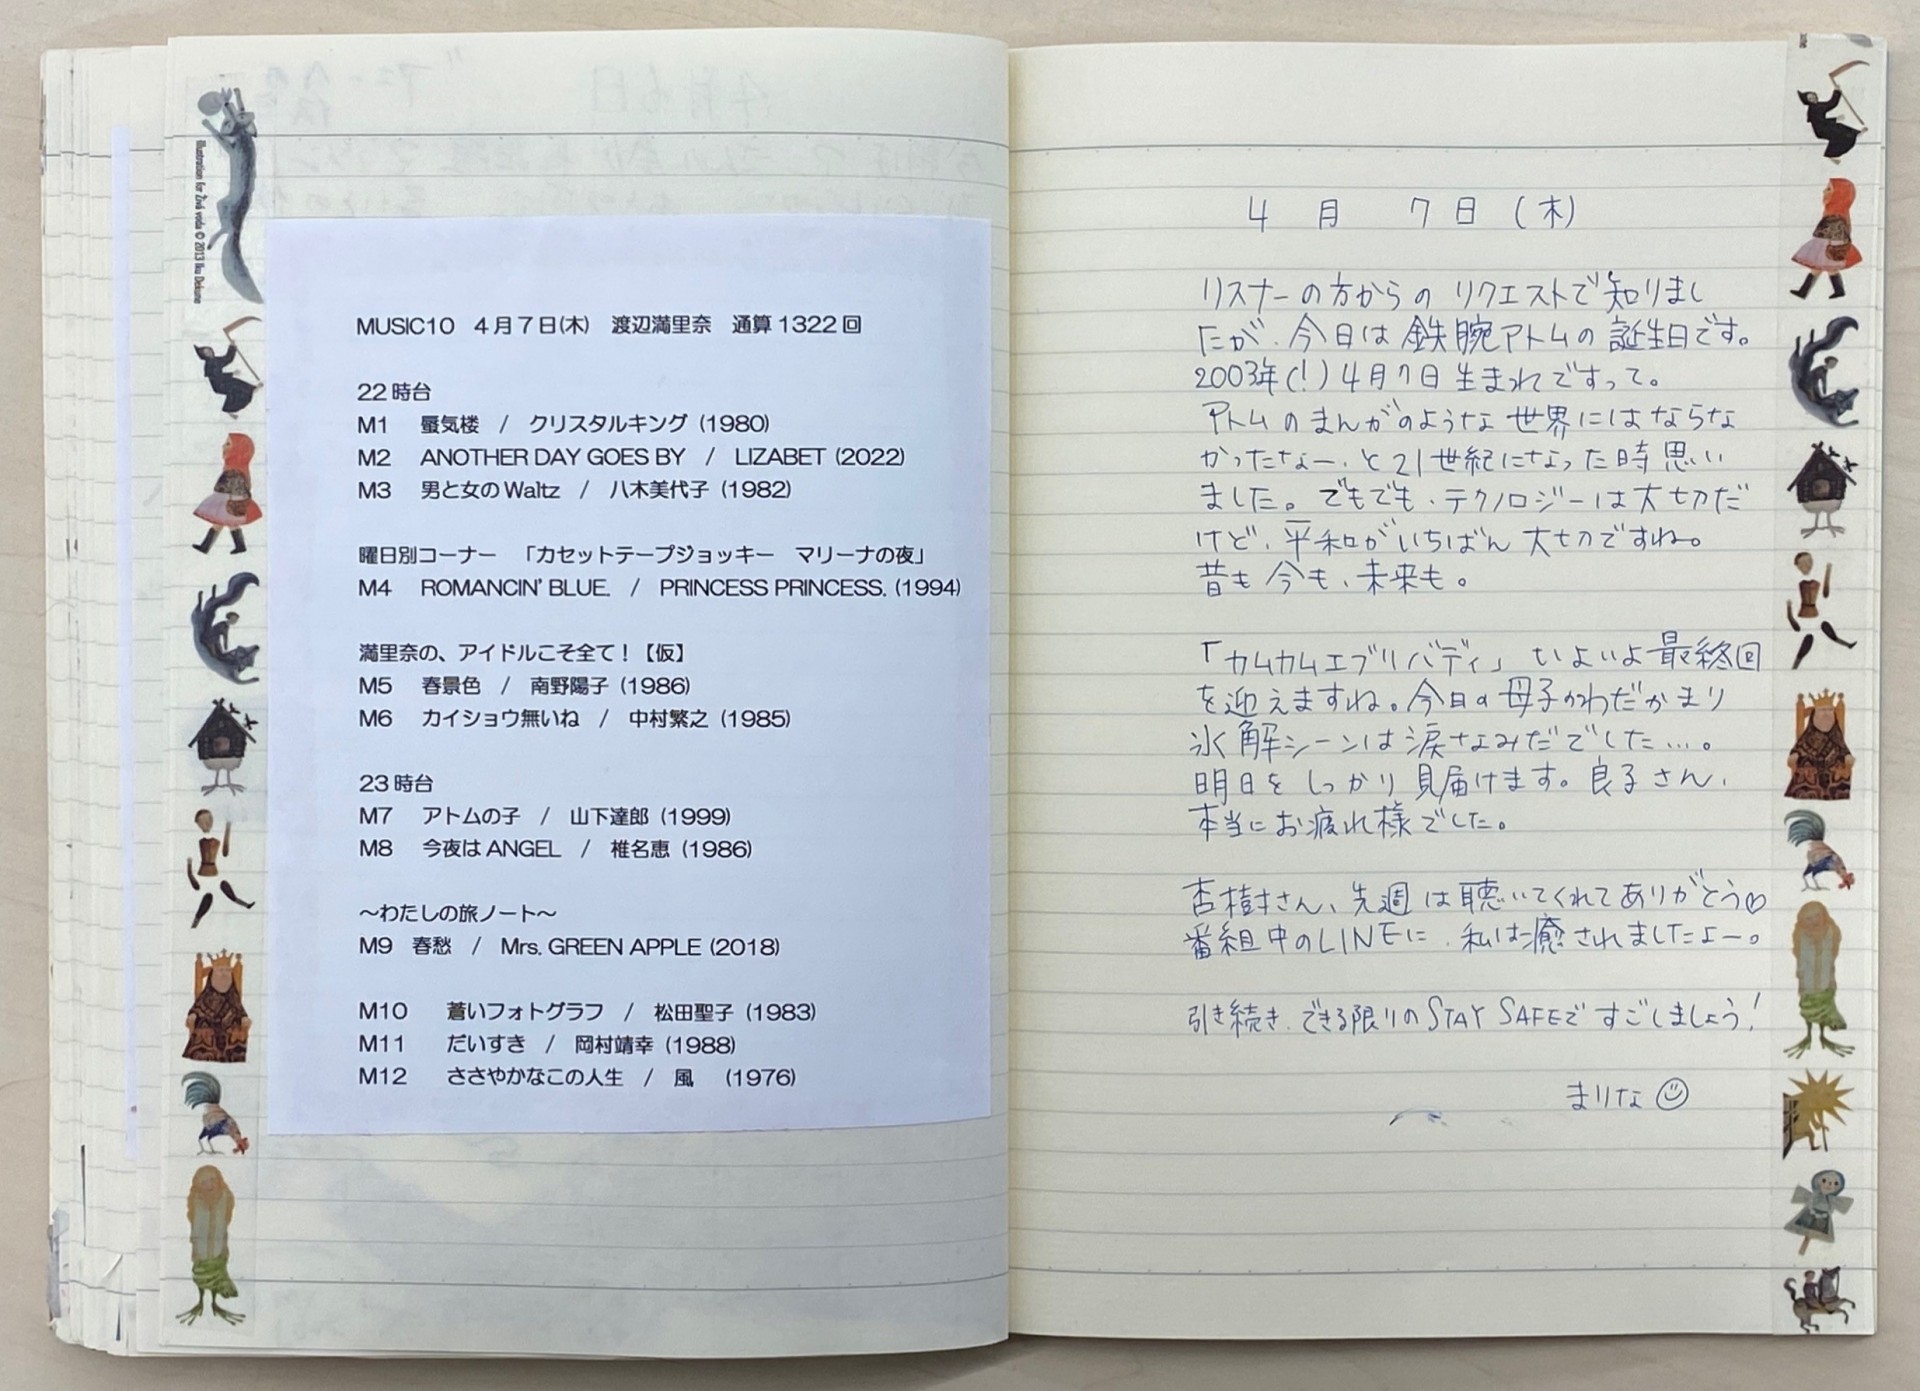 Illustration for Živá voda © 2013 Iku Dekune
MUSIC10 4月7日(木) 渡辺満里奈 通算1322回
22時台
M1 蜃気楼 / クリスタルキング (1980)
M2 ANOTHER DAY GOES BY / LIZABET (2022)
M3 男と女のWaltz / 八木美代子 (1982)
曜日別コーナー 「カセットテープジョッキー マリーナの夜」
M4 ROMANCIN' BLUE. / PRINCESS PRINCESS. (1994)
満里奈の、アイドルこそ全て！【仮】
M5 春景色 / 南野陽子 (1986)
M6 カイショウ無いね / 中村繁之 (1985)
23時台
M7 アトムの子 / 山下達郎 (1999)
M8 今夜はANGEL / 椎名恵 (1986)
～わたしの旅ノート～
M9 春愁 / Mrs. GREEN APPLE (2018)
M10 蒼いフォトグラフ / 松田聖子 (1983)
M11 だいすき / 岡村靖幸 (1988)
M12 ささやかなこの人生 / 風 (1976)
4月 7日(木)
リスナーの方からの リクエストで知りまし
たが、今日は 鉄腕アトムの 誕生日です。
2003年(!)4月7日生まれですって。
アトムのまんがのような世界にはならな
かったなー、と21世紀になった時思い
ました。でもでも、テクノロジーは大切だ
けど、平和がいちばん大切ですね。
昔も今も、未来も。
「カムカムエブリバディ」いよいよ最終回
を迎えますね。今日の母子のわだかまり
氷解シーンは涙なみだでした…。
明日をしっかり見届けます。良子さん、
本当にお疲れ様でした。
杏樹さん、先週は聴いてくれてありがとう♡
番組中のLINEに、私は癒されましたよー。
引き続き、できる限りのSTAY SAFEですごしましょう!
まりな☺